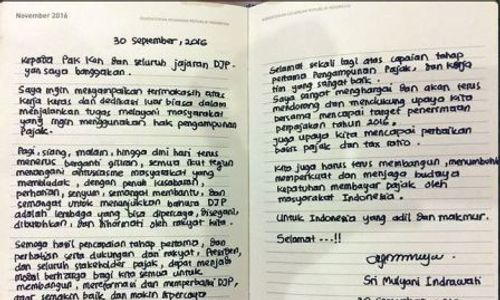 November 2016
KEMENTERIAN KEUANGAN REPUBLIK INDONESIA
30 September, 2016
Kepada Pak Ken dan seluruh jajaran DJP
yan saya banggakan.
Saya ingin menyampaikan terimakasih atas
kerja keras dan dedikasi luar biasa dalam
menjalankan tugas melayani masyarakat
yang ingin menggunakan hak pengampunan
Pajak.
Pagi, siang, malam, hingga dini hari terus
menerus berganti giliran, semua ikut tegun
menangani antusiasme masyarakat yang
membludak, dengan penuh kesabaran,
perhatian, senyum, semangat membantu, dan
semangat untuk menunjukkan bahwa DJP
adalah lembaga yang bisa dipercaya, disegani,
dibutuhkan, dan dihormati oleh rakyat kita.
Semoga hasil pencapaian tahap pertama, dan
perhatian serta dukungan dan rakyat, Presiden,
dan seluruh stakeholder pajak, dapat menjadi
modal berharga bagi kita semua untuk
membangun, mereformasi dan memperbaiki DJP,
agar semakin baik dan makin dipercaya
KEMENTERIAN KEUANGAN REPUBLIK INDONESIA
Selamat sekali lagi atas capaian tahap
pertama Pengampunan Pajak, dan kerja
tim yang sangat baik.
Saya sangat menghargai dan akan terus
mendorong dan mendukung upaya kita
bersama mencapai target penerimaan
perpajakan tahun 2016.
juga upaya kita mencapai perbaikan
basis pajak dan tax ratio.
Kita juga harus terus membangun, menumbuhkan
memperkuat dan menjaga budaya
kepatuhan membayar pajak oleh
masyarakat Indonesia.
Untuk Indonesia yang adil dan makmur.
Selamat ---!!
Sri Mulyani Indrawati
30 September 2016